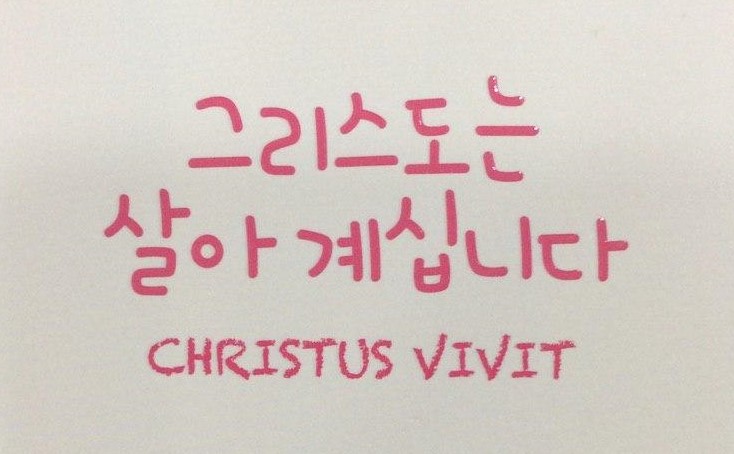 그리스도는
살아 계십니다
CHRISTUS VIVIT